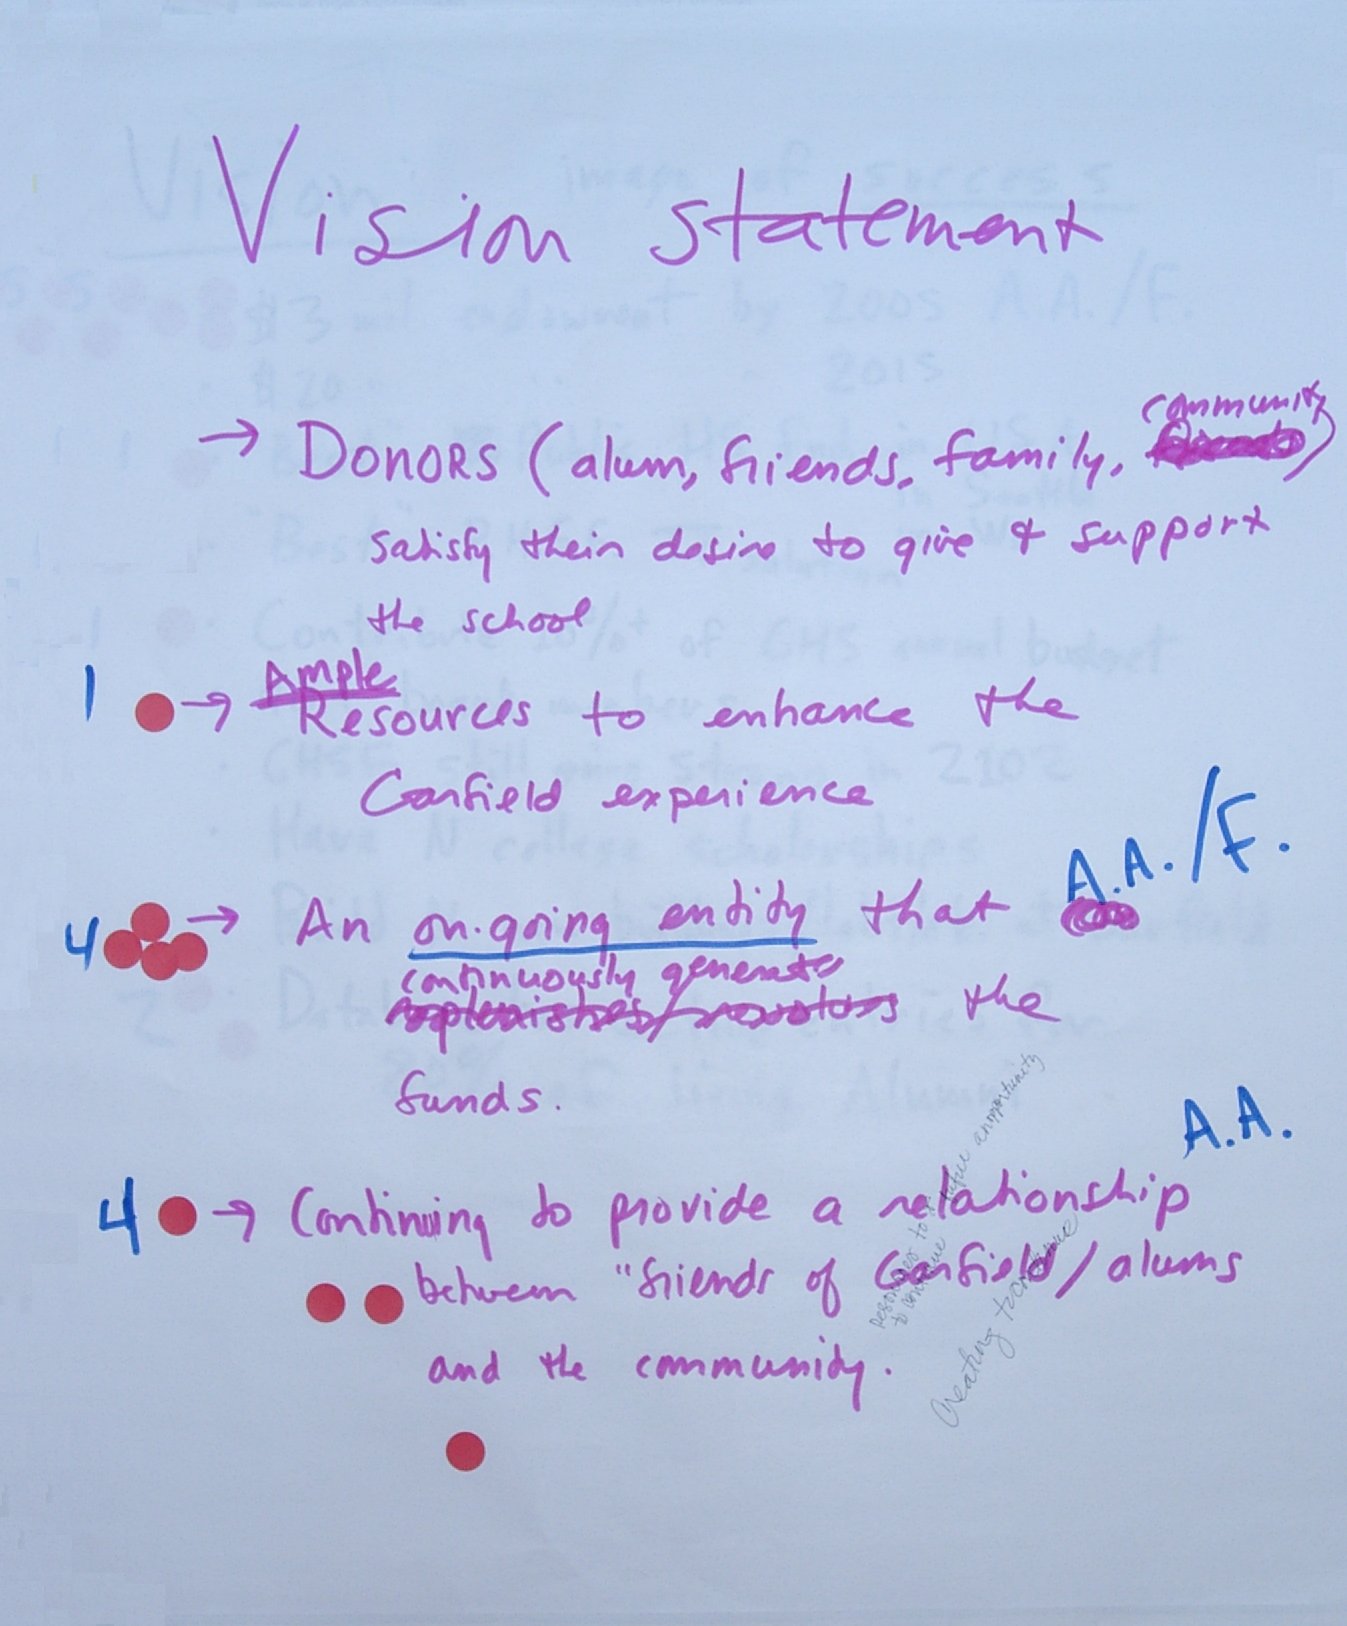 Vision statement
community
→ DONORS (alum, friends, family, )
satisfy their desire to give & support
the school
Ample
1 → Resources to enhance the
Garfield experience
A.A./F.
4 → An on-going entity that
continuously generates
replenishes/revolves the
funds.
A.A.
4 → Continuing to provide a relationship
between "friends of Garfield/alums
and the community.
resources to
to continue
an opportunity
Creating